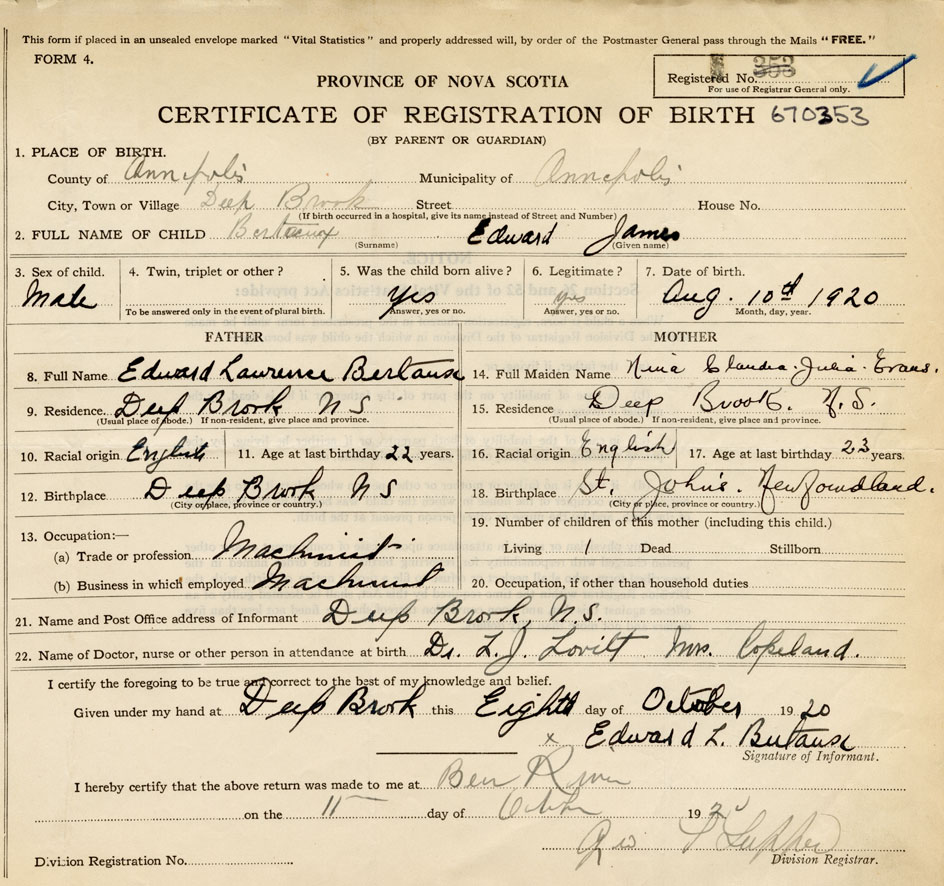 This form if placed in an unsealed envelope marked "Vital Statistics" and properly addressed will, by order of the Postmaster General pass through the Mails "FREE."
FORM 4.
Registered No. 353
For use of Registrar General only.
PROVINCE OF NOVA SCOTIA
CERTIFICATE OF REGISTRATION OF BIRTH 670353
(BY PARENT OR GUARDIAN)
1. PLACE OF BIRTH.
County of Annapolis Municipality of Annapolis
City, Town or Village Deep Brook Street House No.
(If birth occurred in a hospital, give its name instead of Street and Number)
2. FULL NAME OF CHILD Bertaux Edward James
(Surname) (Given name)
3. Sex of child. 4. Twin, triplet or other? 5. Was the child born alive? 6. Legitimate? 7. Date of birth.
Male Yes yes Aug. 10th 1920
To be answered only in the event of plural birth. Answer, yes or no. Answer, yes or no. Month, day, year.
FATHER MOTHER
8. Full Name Edward Lawrence Bertause 14. Full Maiden Name Nina Claudia Julia Evans.
9. Residence. Deep Brook N S 15. Residence Deep Brook. N.S.
(Usual place of abode.) If non-resident, give place and province. (Usual place of abode.) If non-resident, give place and province.
10. Racial origin English 11. Age at last birthday 22 years. 16. Racial origin English 17. Age at last birthday 23 years.
12. Birthplace Deep Brook N S 18. Birthplace St. John's. Newfoundland.
(City or place, province or country.) (City or place, province or country.)
13. Occupation:— 19. Number of children of this mother (including this child.)
(a) Trade or profession Machinist Living 1 Dead Stillborn
(b) Business in which employed Machinist 20. Occupation, if other than household duties
21. Name and Post Office address of Informant Deep Brook, N.S.
22. Name of Doctor, nurse or other person in attendance at birth Dr. L. J. Lovitt Mrs. Copeland.
I certify the foregoing to be true and correct to the best of my knowledge and belief.
Given under my hand at Deep Brook this Eighth day of October 1920
x Edward L. Bertause
Signature of Informant.
I hereby certify that the above return was made to me at Bear River
on the 11 day of October 1920
Division Registration No. Division Registrar.